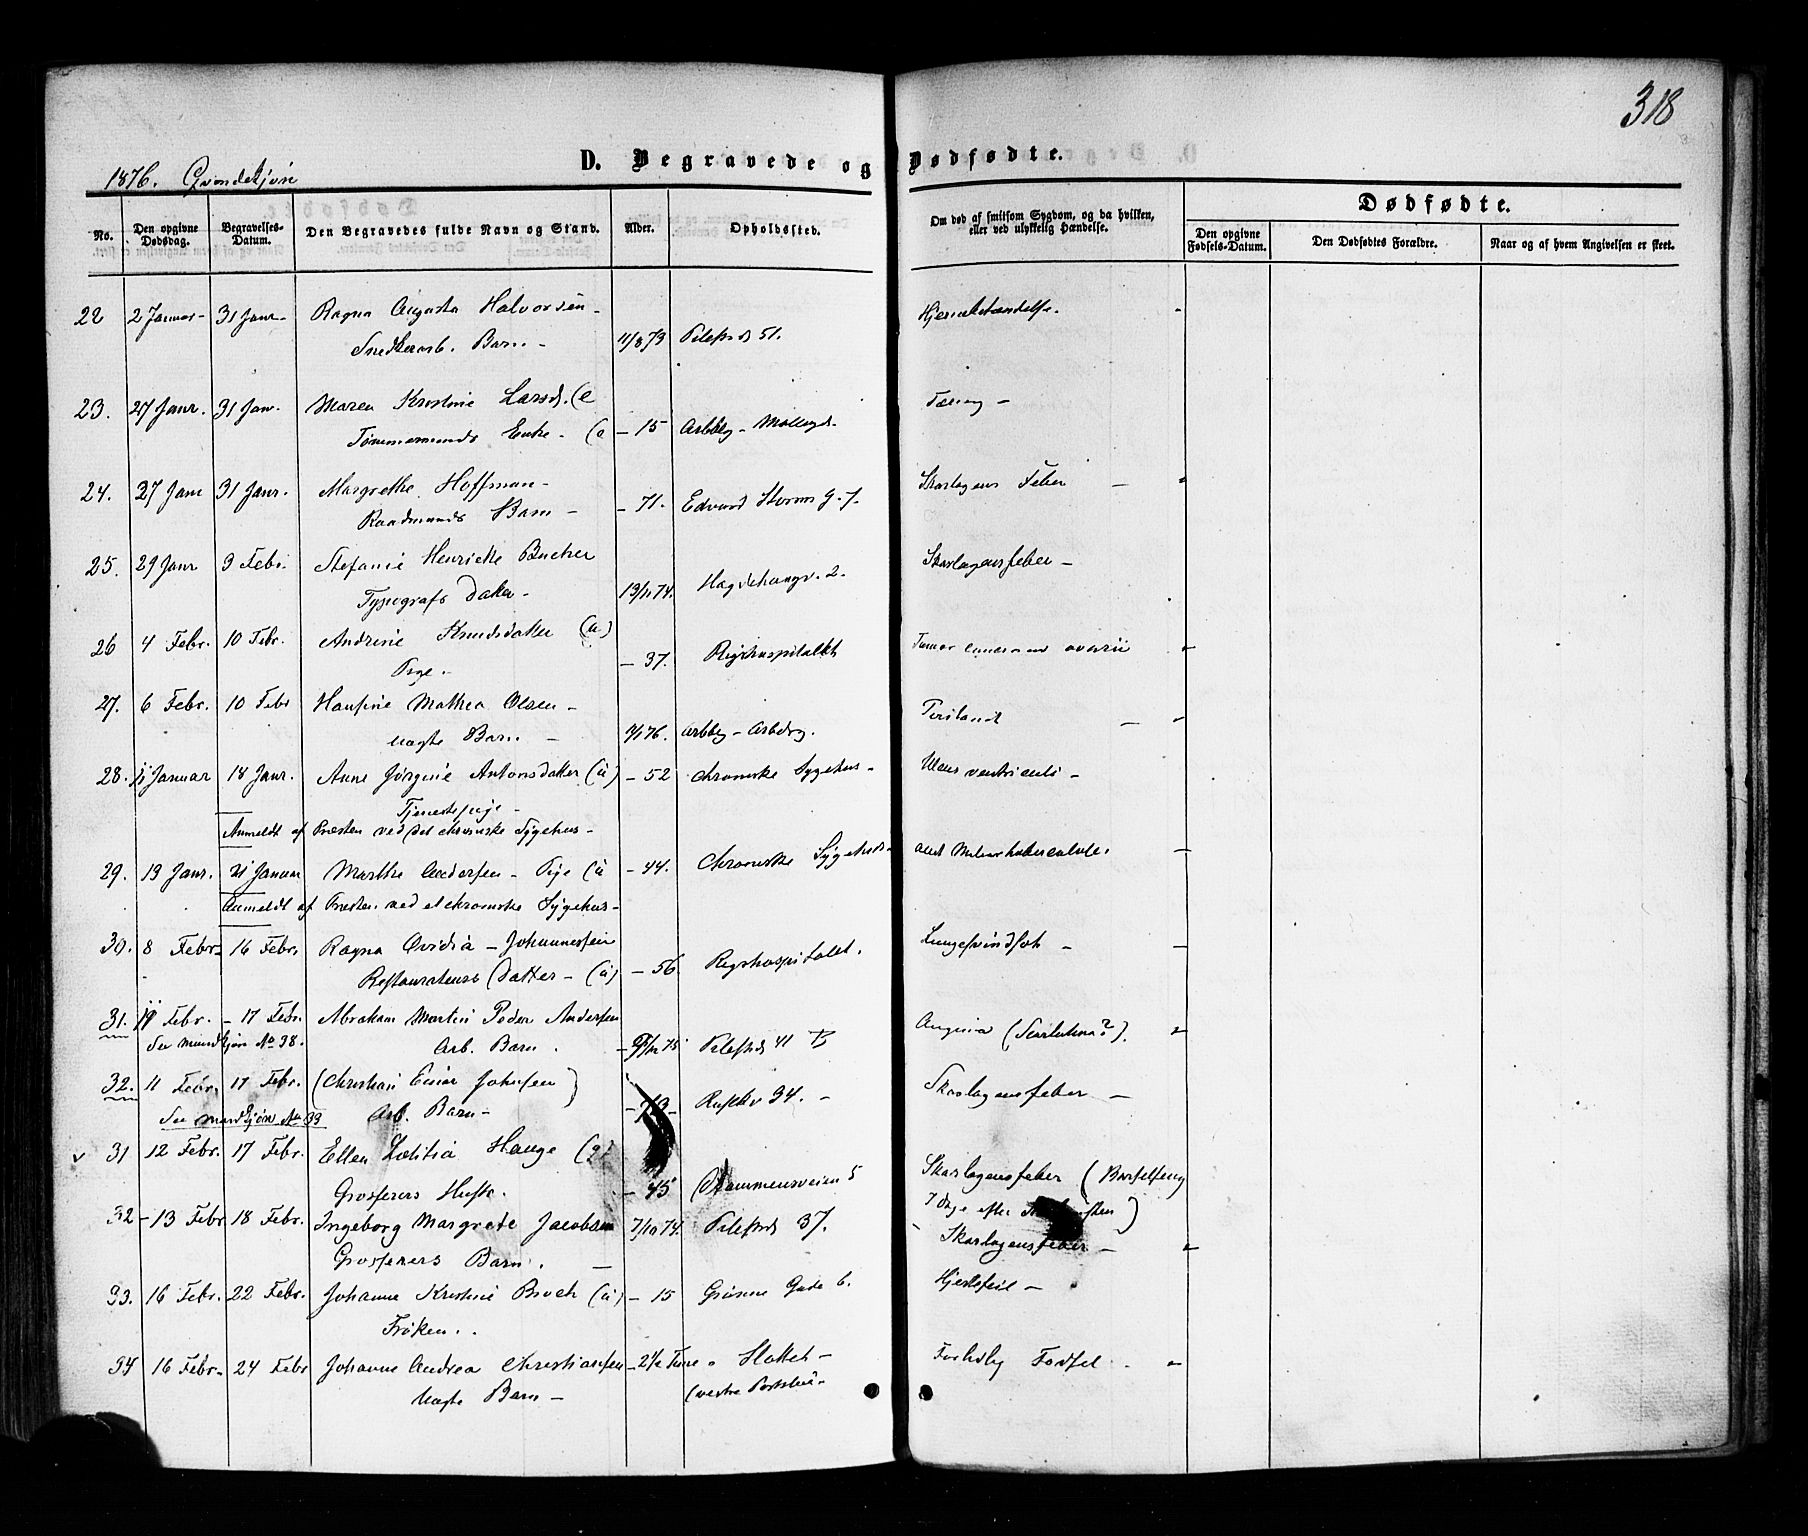 318
D. Begravede og Dødfødte.
1876. Qvindekjøn
No.
Den opgivne Dødsdag.
Begravelses-Datum.
Den Begravedes fulde Navn og Stand.
Alder.
Opholdssted.
Om død af smitsom Sygdom, og da hvilken, eller ved ulykkelig Hændelse.
Dødfødte.
Den opgivne Fødsels-Datum.
Den Dødfødtes Forældre.
Naar og af hvem Angivelsen er skeet.
22 2 Januar - 31 Janr - Ragna Augusta Halvorsen -
Snedkerarb. Barn - 11/8 73 Pilestrd 51.
23. 27 Janr. 31 Jan. Maren Kristine Larsd.
Tømmermands Enke - - 15 Arbbg - Møllegd.
24. 27 Janr 31 Janr. Margrethe Hoffman - Skarlagens Feber -
Raadmands Barn - - 71. Edvard Storms G. 7.
25. 29 Janr 3 Febr. Stefanie Henriette Bucher Skarlagensfeber -
Typografs Datter - 13/11 74. Hægdehaugv. 2.
26 4 Febr. 10 Febr. Andrine Knudsdatter (u) Tumor ovarii
Pige. - 37. Rigshospitalet
27. 6 Febr. 10 Febr Hansine Mathea Olsen -
uægte Barn - Arbbg - Arbdsg.
28. 11 Januar 18 Janr. Anne Jørgine Antonsdatter (u) - 52 chroniske Sygehus - Ulcus ventriculi -
Tjenestepige -
Anmeldt af Præsten ved det chroniske Sygehus -
29. 13 Janr. 21 Januar Marthe Andersen - Pige (u - 44. chroniske Sygehus -
Anmeldt af Præsten ved chroniske Sygehus -
30. 8 Febr - 16 Febr. Ragna Ovidia - Johannessen Lungesvindsot -
Restaurateurs Datter - (u) - 56 Rigshospitalet.
31. 11 Febr. - 17 Febr. Abraham Martin Peder Andersen Angina (Scarlatina?).
See mandkjøn No 38. Arb. Barn. Pilestrd 41 B
32. 11 Febr. 17 Febr. (Christian Einar Johnsen) Skarlagensfeber -
See mandkjøn No 39 Arb. Barn - 34. -
v 31 12 Febr. 17 Febr. Ellen Lætitia Hauge (g) Skarlagensfeber (Barselseng
Grosserers Hustr. - 45 Drammensveien 5 7 Dage efter)
32 - 13 Febr 18 Febr. Ingeborg Margrete Jacobsen 7/10 74. Pilestrd 37. Skarlagensfeber -
Grosserers Barn. -
33. 16 Febr. 22 Febr. Johanne Kristine Broch (u) - 15 Grønne Gade 6. Hjertefeil -
Frøken.
34 16 Febr. 24 Febr Johanne Andrea Christiansen - 2½ Time Slottet - Forhdlig Fødsel
Uægte Barn - (vestre Portstue -